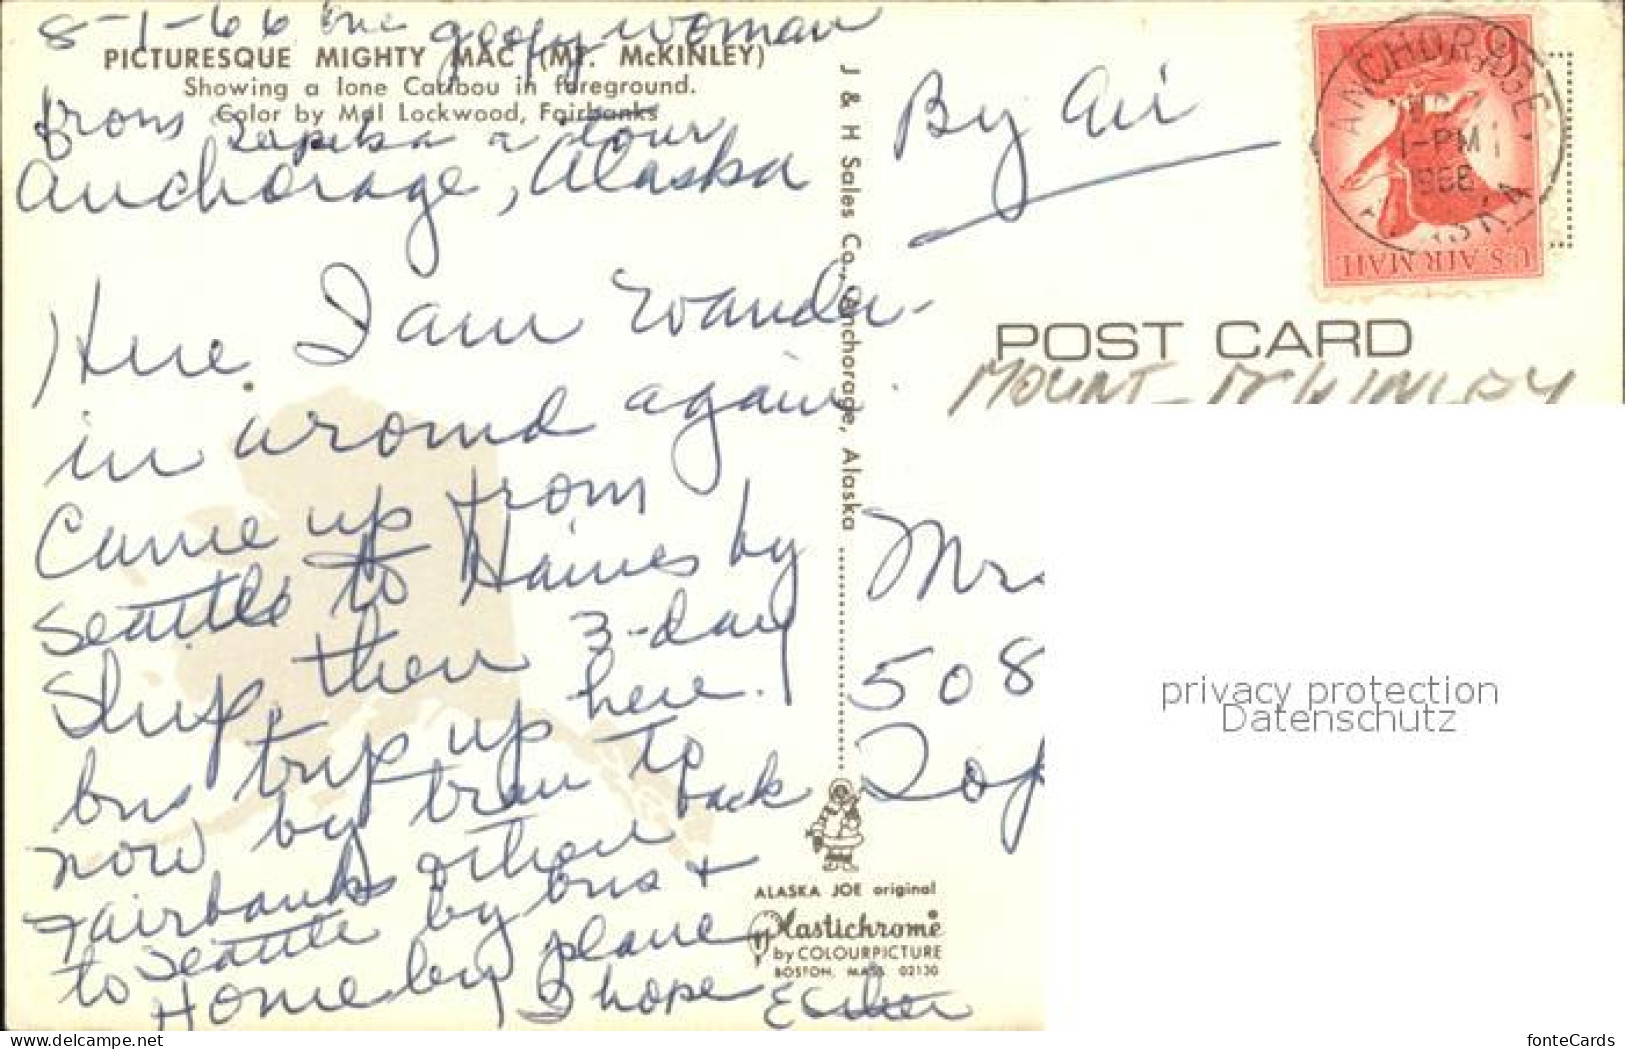 8-1-66 one goofy woman
PICTURESQUE MIGHTY MAC (MT. McKINLEY)
Showing a lone Caribou in foreground.
Color by Mal Lockwood, Fairbanks
from Topeka a tour
Anchorage, Alaska
Here I am wander-
in around again.
Came up from
Seattle to Haines by
Ship, then 3-day
bus trip up here.
now by train to
Fairbanks then back
to Seattle by bus +
Home by plane
I hope Esther
J & H Sales Co., Anchorage, Alaska
ALASKA JOE original
Plastichrome
by COLOURPICTURE
BOSTON, MASS 02130
By Air
ANCHORAGE
1-PM
1966
U.S. AIR MAIL
POST CARD
MOUNT - McKINLEY
Mrs
508
Top
privacy protection
Datenschutz
www.delcampe.net
fonteCards